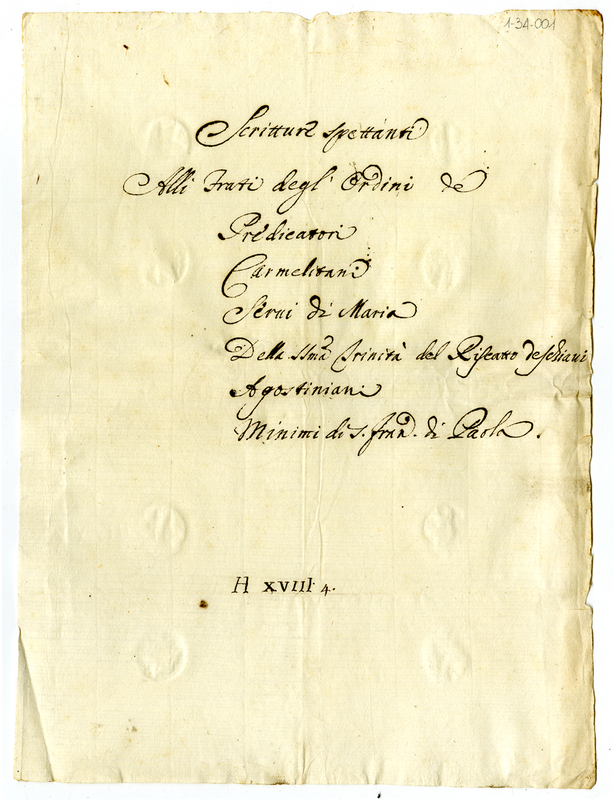 1-34-001
Scritture spettanti
Alli Frati degl' Ordini de
Predicatori
Carmelitani
Servi di Maria
Della SSma Trinità del Riscatto de schiavi
Agostiniani
Minimi di S. Fran.º di Paola.
H XVIII 4.